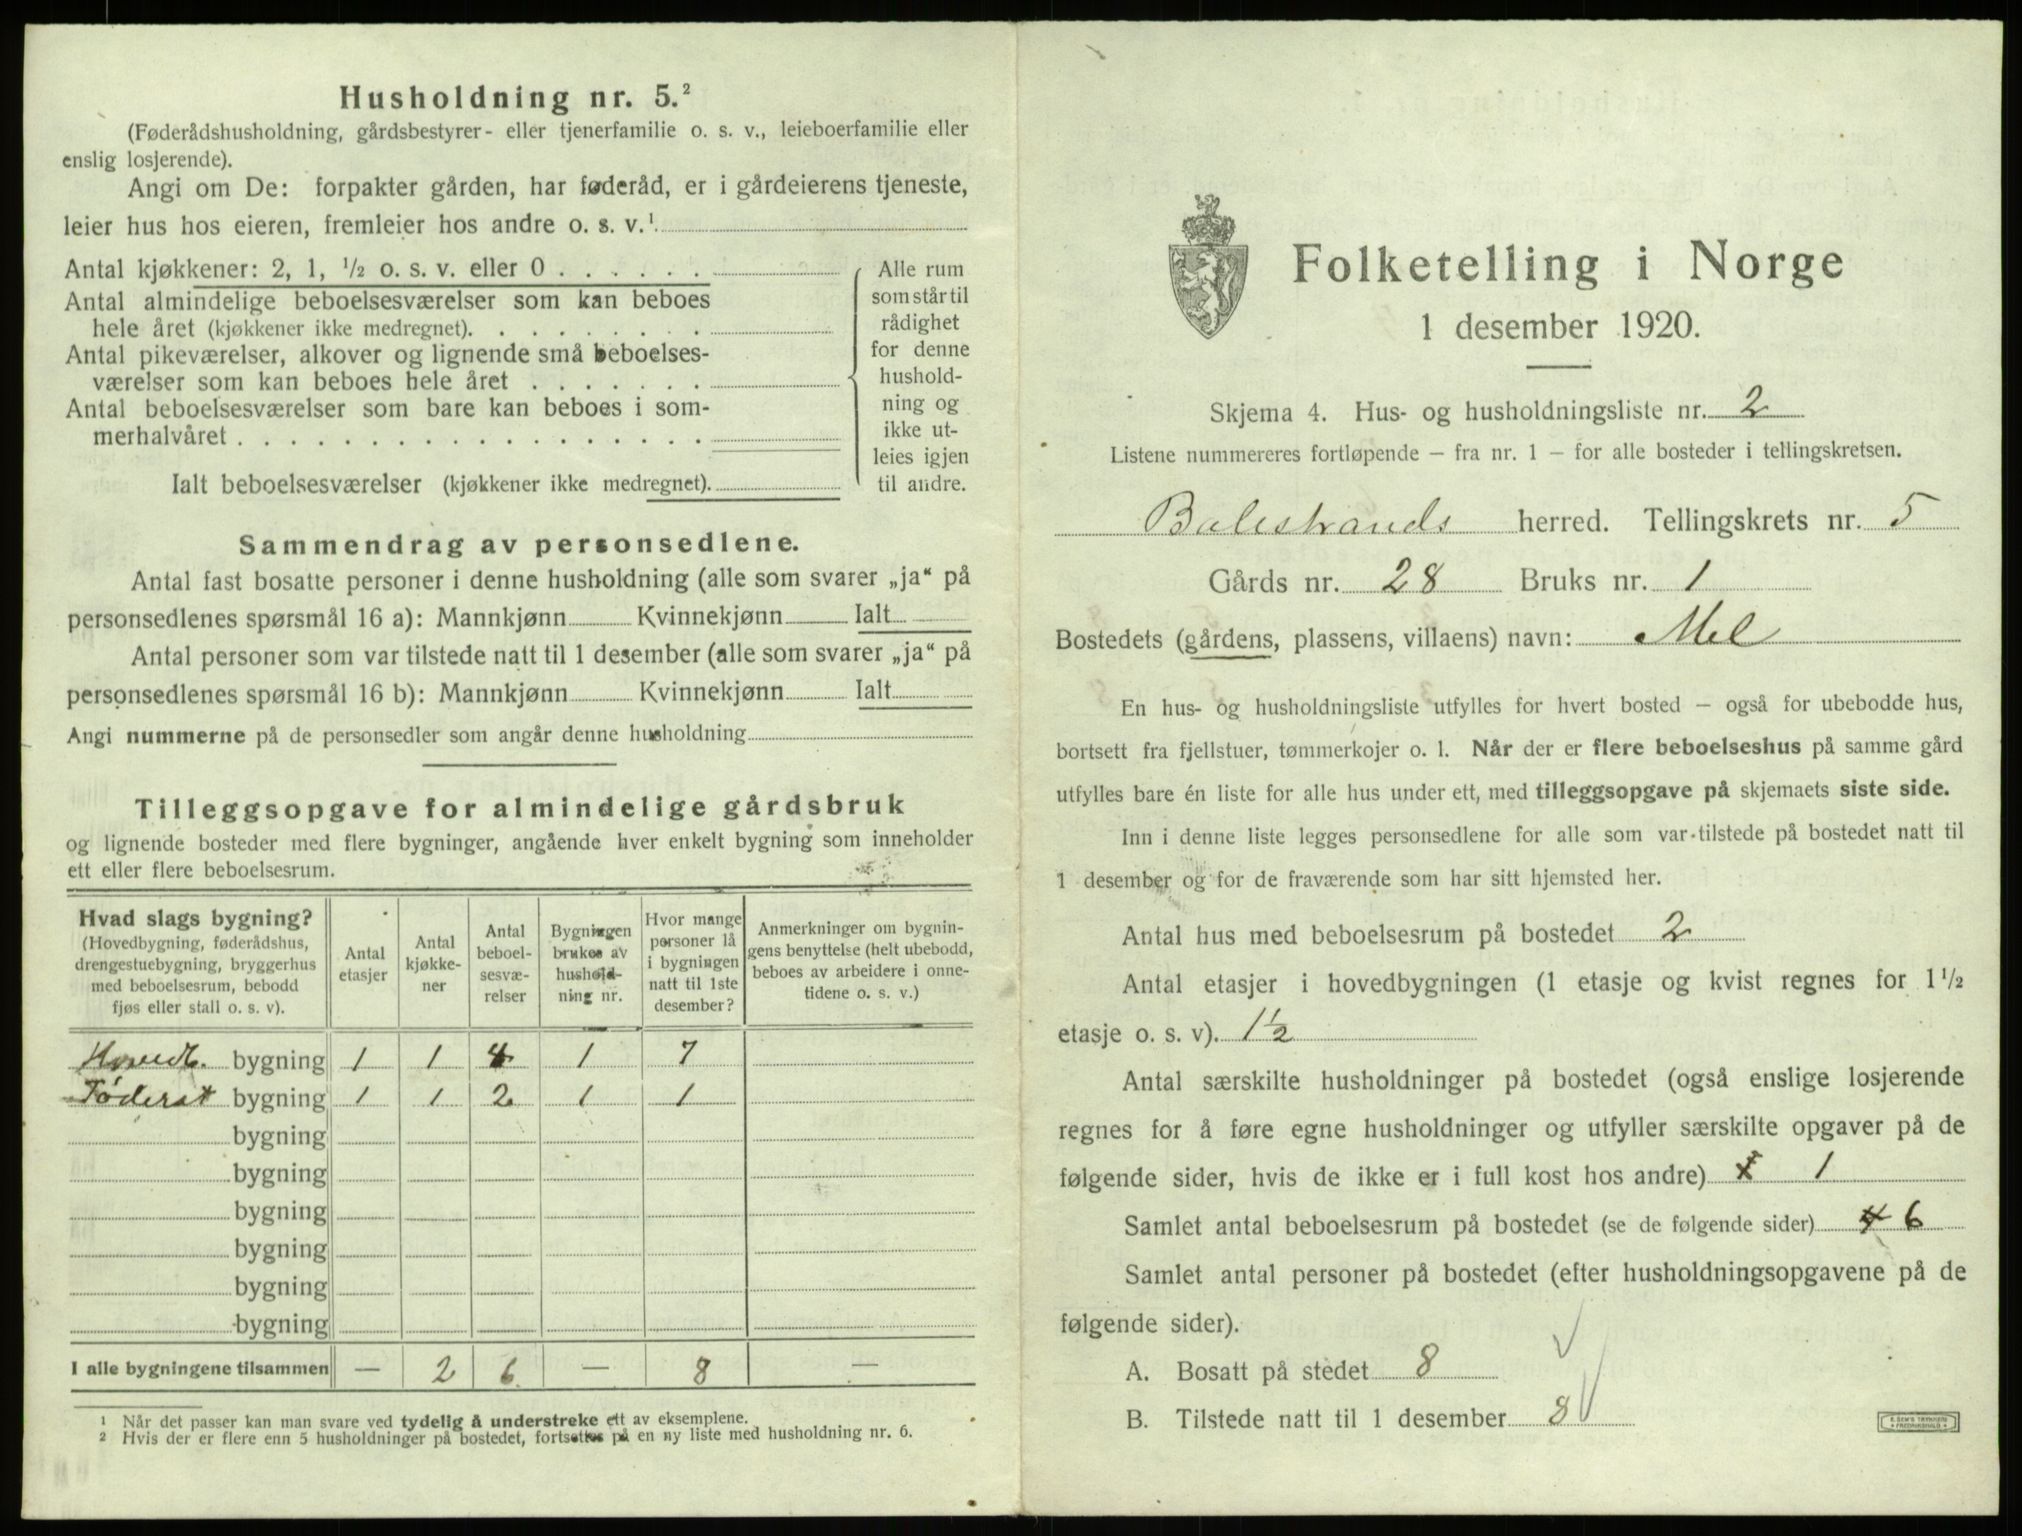 Husholdning nr. 5.²
(Føderådshusholdning, gårdsbestyrer- eller tjenerfamilie o. s. v., leieboerfamilie eller
enslig losjerende).
Angi om De: forpakter gården, har føderåd, er i gårdeierens tjeneste,
leier hus hos eieren, fremleier hos andre o. s. v.¹
Antal kjøkkener: 2, 1, ½ o. s. v. eller 0 . . . . . .
Antal almindelige beboelsesværelser som kan beboes
hele året (kjøkkener ikke medregnet). . . . . . . . .
Antal pikeværelser, alkover og lignende små beboelses-
værelser som kan beboes hele året . . . . . . .
Antal beboelsesværelser som bare kan beboes i som-
merhalvåret . . . . . . . . . . . . . . . . . .
Ialt beboelsesværelser (kjøkkener ikke medregnet).
Alle rum
som står til
rådighet
for denne
hushold-
ning og
ikke ut-
leies igjen
til andre.
Sammendrag av personsedlene.
Antal fast bosatte personer i denne husholdning (alle som svarer „ja“ på
personsedlenes spørsmål 16 a): Mannkjønn Kvinnekjønn Ialt
Antal personer som var tilstede natt til 1 desember (alle som svarer „ja“ på
personsedlenes spørsmål 16 b): Mannkjønn Kvinnekjønn Ialt
Angi nummerne på de personsedler som angår denne husholdning
Tilleggsopgave for almindelige gårdsbruk
og lignende bosteder med flere bygninger, angående hver enkelt bygning som inneholder
ett eller flere beboelsesrum.
Hvad slags bygning?
(Hovedbygning, føderådshus,
drengestuebygning, bryggerhus
med beboelsesrum, bebodd
fjøs eller stall o. s. v).
Antal
etasjer
Antal
kjøkke-
ner
Antal
beboel-
sesvæ-
relser
Bygningen
brukes av
hushold-
ning nr.
Hvor mange
personer lå
i bygningen
natt til 1ste
desember?
Anmerkninger om bygnin-
gens benyttelse (helt ubebodd,
beboes av arbeidere i onne-
tidene o. s. v.)
Hovedb. bygning 1 1 4 1 7
Føderåt bygning 1 1 2 1 1
bygning
bygning
bygning
bygning
bygning
bygning
I alle bygningene tilsammen — 2 6 — 8 —
¹ Når det passer kan man svare ved tydelig å understreke ett av eksemplene.
² Hvis der er flere enn 5 husholdninger på bostedet, fortsettes på en ny liste med husholdning nr. 6.
Folketelling i Norge
1 desember 1920.
Skjema 4. Hus- og husholdningsliste nr. 2
Listene nummereres fortløpende — fra nr. 1 — for alle bosteder i tellingskretsen.
Balestrands herred. Tellingskrets nr. 5
Gårds nr. 28 Bruks nr. 1
Bostedets (gårdens, plassens, villaens) navn: Mel
En hus- og husholdningsliste utfylles for hvert bosted — også for ubebodde hus,
bortsett fra fjellstuer, tømmerkojer o. l. Når der er flere beboelseshus på samme gård
utfylles bare én liste for alle hus under ett, med tilleggsopgave på skjemaets siste side.
Inn i denne liste legges personsedlene for alle som var tilstede på bostedet natt til
1 desember og for de fraværende som har sitt hjemsted her.
Antal hus med beboelsesrum på bostedet 2
Antal etasjer i hovedbygningen (1 etasje og kvist regnes for 1 ½
etasje o. s. v). 1½
Antal særskilte husholdninger på bostedet (også enslige losjerende
regnes for å føre egne husholdninger og utfyller særskilte opgaver på de
følgende sider, hvis de ikke er i full kost hos andre) 1
Samlet antal beboelsesrum på bostedet (se de følgende sider) 4 6
Samlet antal personer på bostedet (efter husholdningsopgavene på de
følgende sider).
A. Bosatt på stedet 8
B. Tilstede natt til 1 desember 8